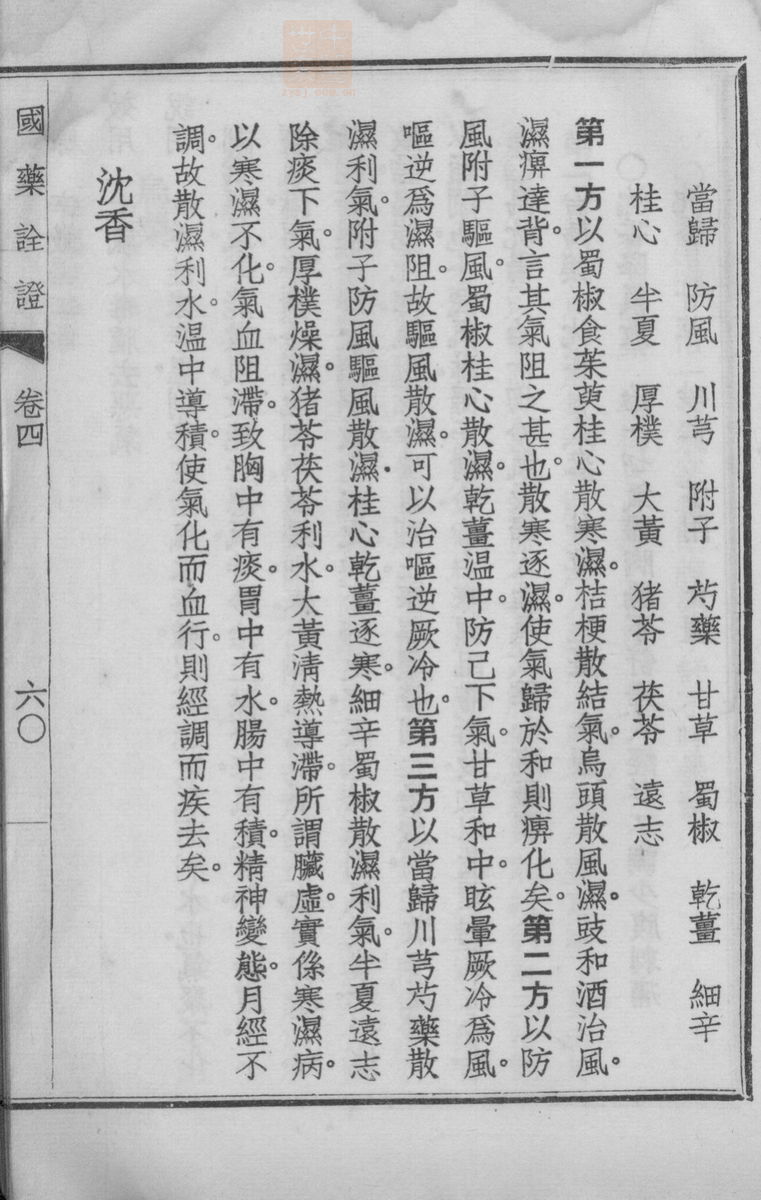 當歸　防風　川芎　附子　芍藥　甘草　蜀椒　乾薑　細辛
桂心　半夏　厚樸　大黃　猪苓　茯苓　遠志
第一方以蜀椒食茱萸桂心散寒濕。桔梗散結氣。烏頭散風濕。豉和酒治風。
濕痹達背。言其氣阻之甚也。散寒逐濕。使氣歸於和則痹化矣。第二方以防
風附子驅風。蜀椒桂心散濕。乾薑温中。防己下氣。甘草和中。眩暈厥冷爲風。
嘔逆爲濕阻。故驅風散濕。可以治嘔逆厥冷也。第三方以當歸川芎芍藥散
濕利氣。附子防風驅風散濕。桂心乾薑逐寒。細辛蜀椒散濕利氣。半夏遠志
除痰下氣。厚樸燥濕。猪苓茯苓利水。大黃淸熱導滯。所謂臟虛。實係寒濕病。
以寒濕不化。氣血阻滯。致胸中有痰。胃中有水。腸中有積。精神變態。月經不
調。故散濕利水。温中導積。使氣化而血行。則經調而疾去矣。
沈香
國藥詮證　卷四　六〇